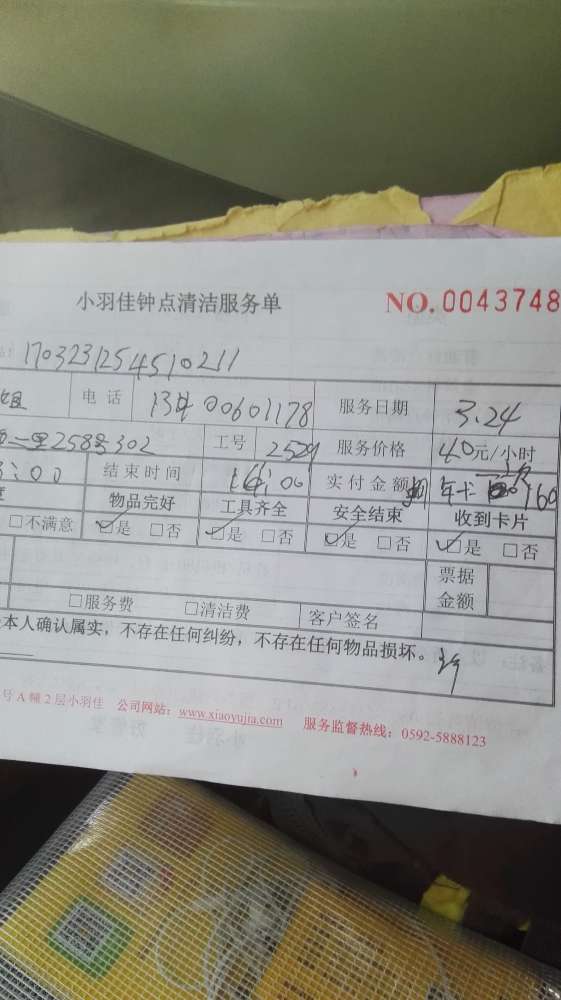 小羽佳钟点清洁服务单 NO.0043748
1703231254510211
姐 电话 13400601178 服务日期 3.24
一里258号302 工号 2529 服务价格 40元/小时
:00 结束时间 16:00 实付金额 年卡 160
物品完好 工具齐全 安全结束 收到卡片
□不满意 ☑是 □否 ☑是 □否 ☑是 □否 ☑是 □否
票据金额
□服务费 □清洁费 客户签名
本人确认属实，不存在任何纠纷，不存在任何物品损坏。
号A幢2层小羽佳 公司网站：www.xiaoyujia.com 服务监督热线：0592-5888123